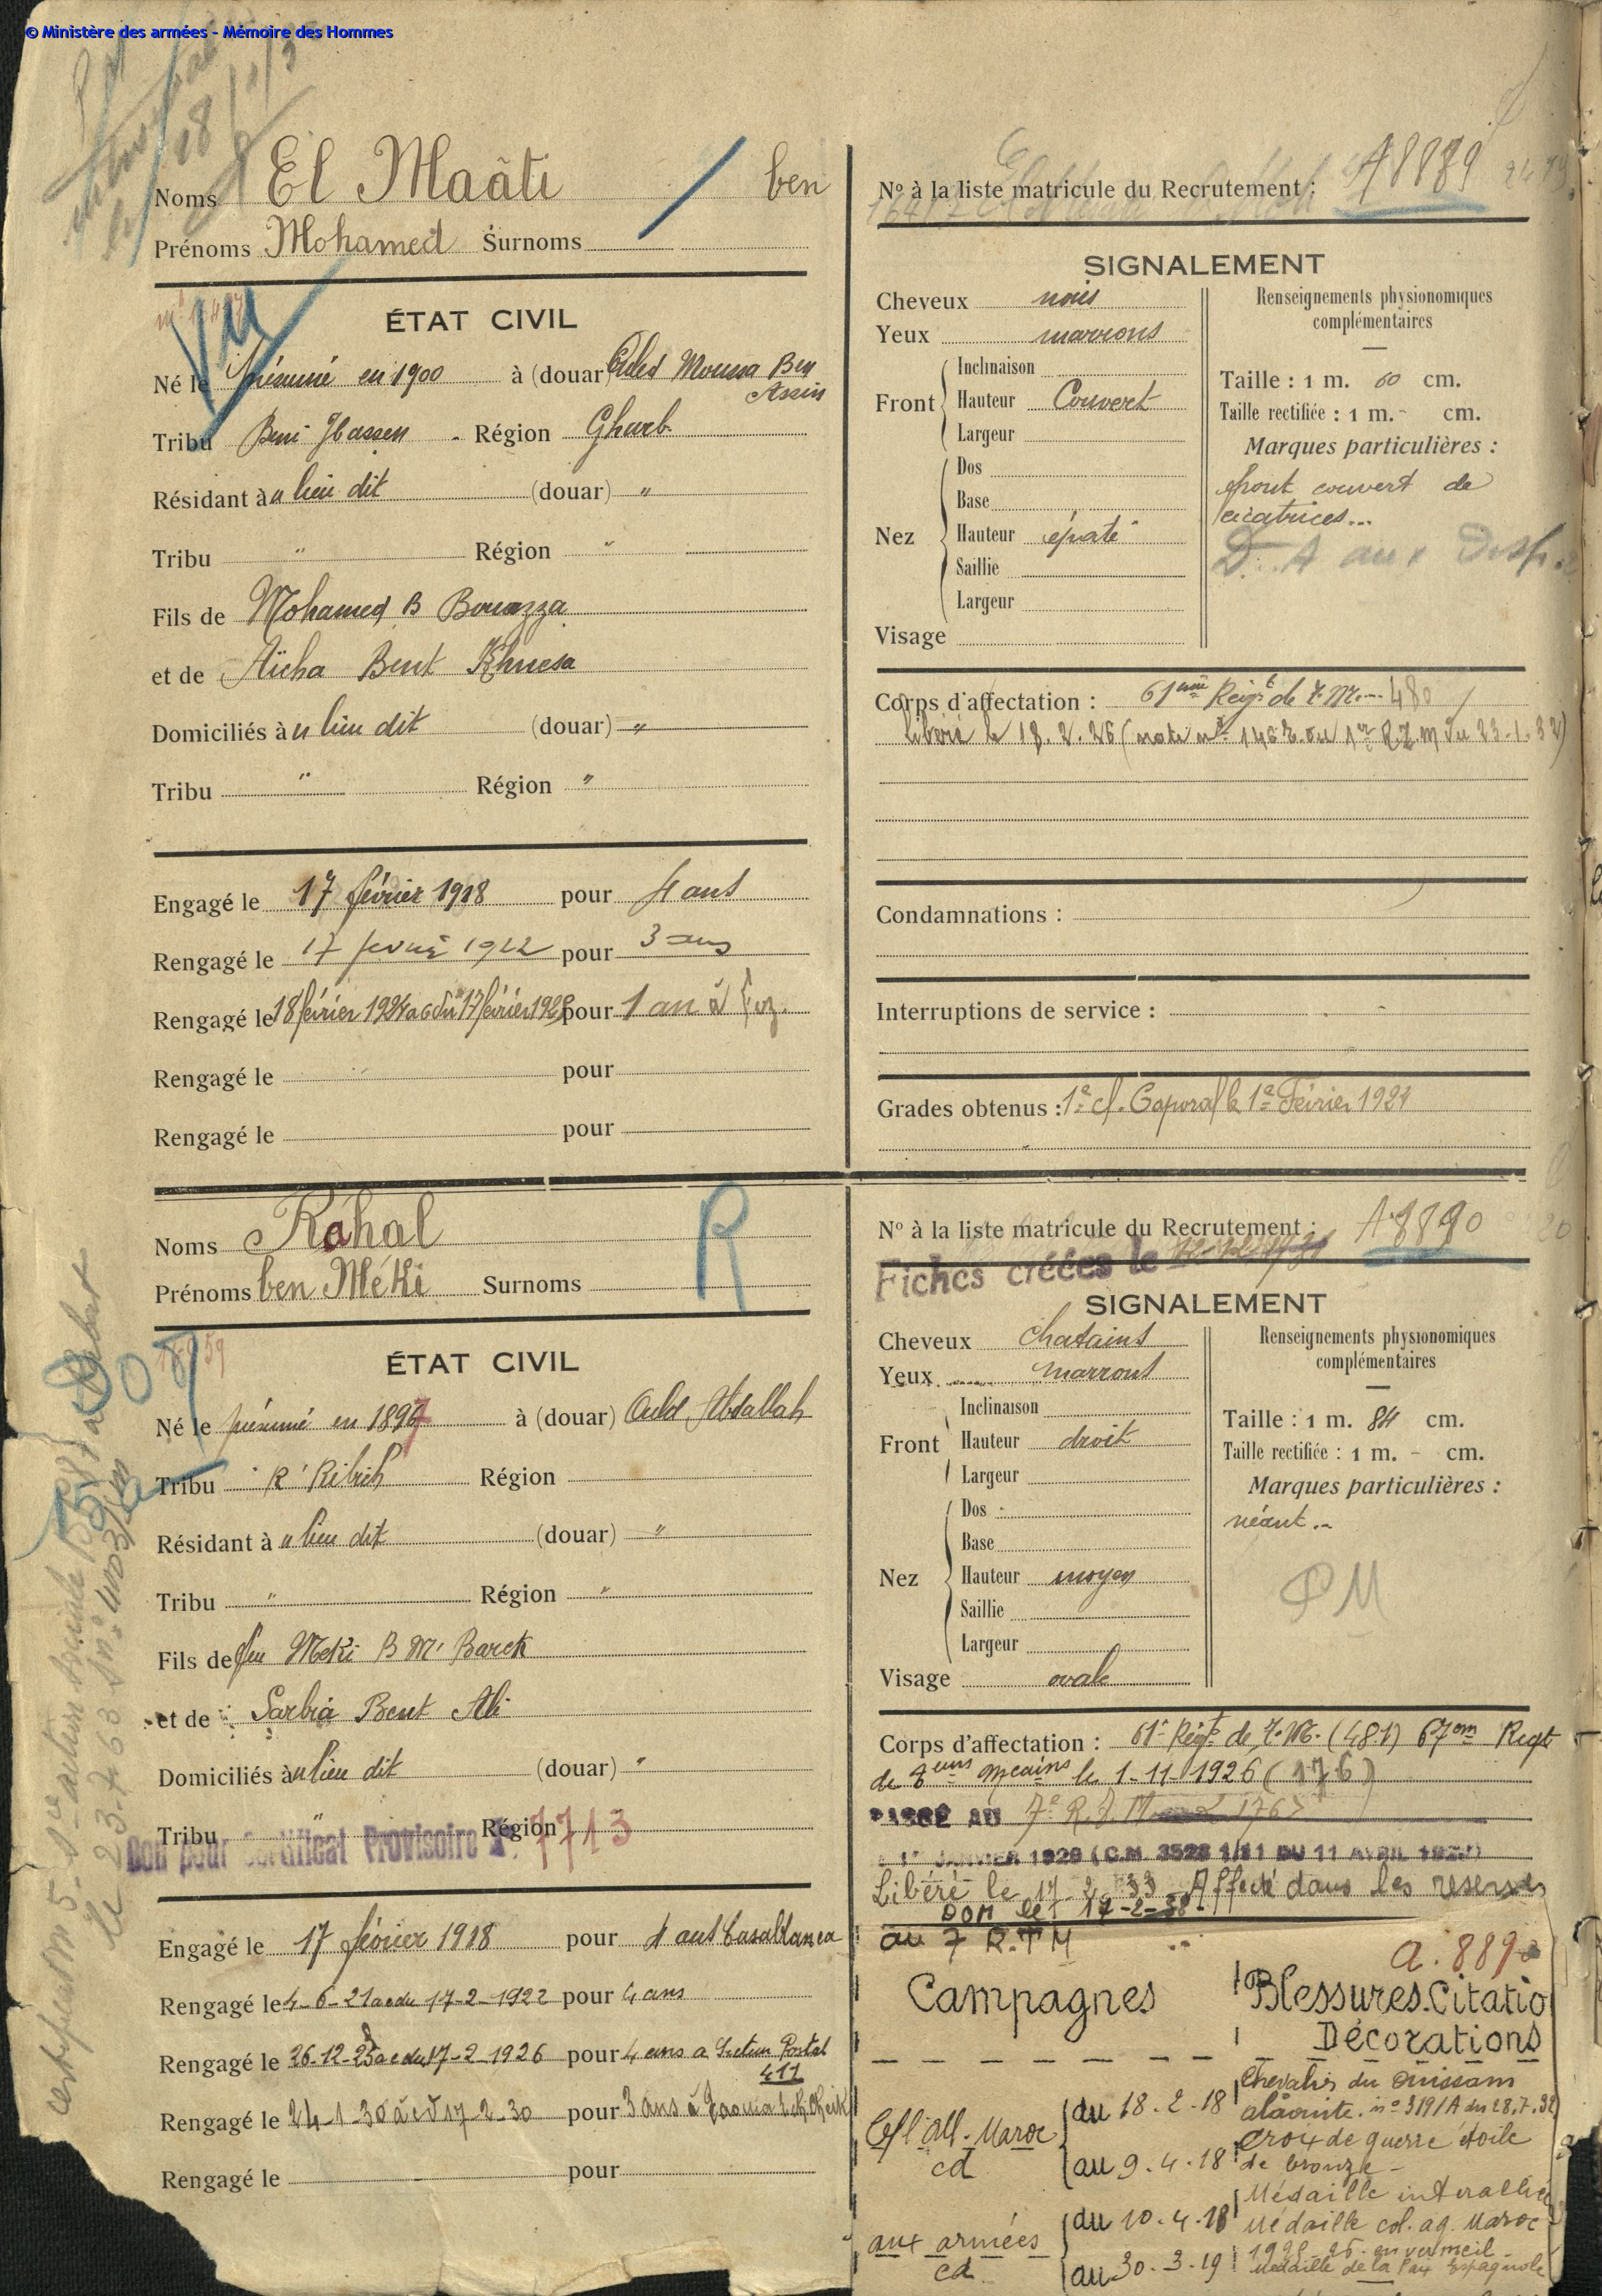 © Ministère des armées - Mémoire des Hommes
Noms El Maâti ben
Prénoms Mohamed Surnoms
ÉTAT CIVIL
Né le présumé en 1900 à (douar) Ouled Moussa Ben Assin
Tribu Beni Hassen Région Gharb
Résidant à u lieu dit (douar) "
Tribu " Région "
Fils de Mohamed B Bouazza
et de Aïcha Bent
Domiciliés à u lieu dit (douar) "
Tribu " Région "
Engagé le 17 février 1918 pour 4 ans
Rengagé le 17 février 1922 pour 3 ans
Rengagé le 18 février 1924 a c du 17 février 1925 pour 1 an à
Rengagé le pour
Rengagé le pour
No à la liste matricule du Recrutement : A8889
SIGNALEMENT
Cheveux noirs
Yeux marrons
Front
Inclinaison
Hauteur Couvert
Largeur
Nez
Dos
Base
Hauteur épaté
Saillie
Largeur
Visage
Renseignements physionomiques
complémentaires
Taille : 1 m. 60 cm.
Taille rectifiée : 1 m. - cm.
Marques particulières :
front couvert de
cicatrices...
Corps d'affectation : 61ème Regt de T.M. 480
libéré le 18.2.26 (note no 1462 du 1er R.T.M du 23.1.32)
Condamnations :
Interruptions de service :
Grades obtenus : 1e cl. Caporal le 1er Février 1924
Noms Rahal R
Prénoms ben Méki Surnoms
ÉTAT CIVIL
Né le présumé en 1897 à (douar) Ouled Abdallah
Tribu Région
Résidant à u lieu dit (douar) "
Tribu " Région "
Fils de feu Meki B M'Barek
et de Bent Ali
Domiciliés à u lieu dit (douar) "
Tribu " Région
Bon pour Certificat Provisoire 7713
Engagé le 17 février 1918 pour 4 ans Casablanca
Rengagé le 4-6-21 acdu 17-2-1922 pour 4 ans
Rengagé le 26-12-25 acdu 17-2-1926 pour 4 ans a Secteur Postal 411
Rengagé le 24-1-30 à c d 17-2-30 pour 3 ans à
Rengagé le pour
No à la liste matricule du Recrutement : A8890
Fiches créées le
SIGNALEMENT
Cheveux chatains
Yeux marrons
Front
Inclinaison
Hauteur droit
Largeur
Nez
Dos
Base
Hauteur moyen
Saillie
Largeur
Visage ovale
Renseignements physionomiques
complémentaires
Taille : 1 m. 84 cm.
Taille rectifiée : 1 m. - cm.
Marques particulières :
néant
PM
Corps d'affectation : 61e Régt de T.M. (481) 67em Regt
de Teurs Mcains le 1-11-1926 (176)
PASSÉ AU 7e R.T.M
1er JANVIER 1929 (C.M. 3528 1/11 DU 11 AVRIL
Libéré le 17-2-33 Affecté dans les réserves
DOM 17-2-38
au 7 R.T.M
a. 8890
Campagnes
Blessures.Citatio
Décorations
Maroc
cd
du 18.2.18
au 9.4.18
Chevalier du Ouissam
alaouite. no 319/A du 28.7.32
croix de guerre étoile
de bronze
Médaille interalliée
Médaille col. ag. Maroc
1925-26. en vermeil
Médaille de la Paix Espagnole
aux armées
cd
du 10.4.18
au 30.3.19